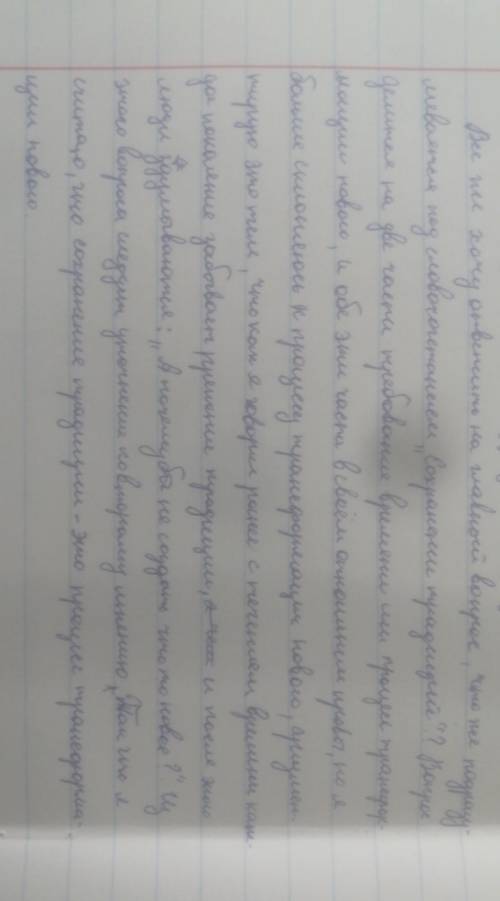 Вс же хочу ответить на главный вопрос, что же подразу-
мевается под словосочетанием „Сохранение традиций"? Вопрос
делится на две части требование времени или процесс трансфор-
мации нового, и обе эти части в своём отношении правы, но я
больше склоняюсь к процессу трансформации нового, аргумен-
тирую это тем, что как я говорил ранее с течением времени, ког-
да поколение забывает прошлые традиции, и после это
люди задумываются: „А почему бы не создать что то новое?" Из
этого вопроса следует уточнение ко второму мнению, Так что я
считаю, что сохранение традиции - это процесс трансформа-
ции нового.